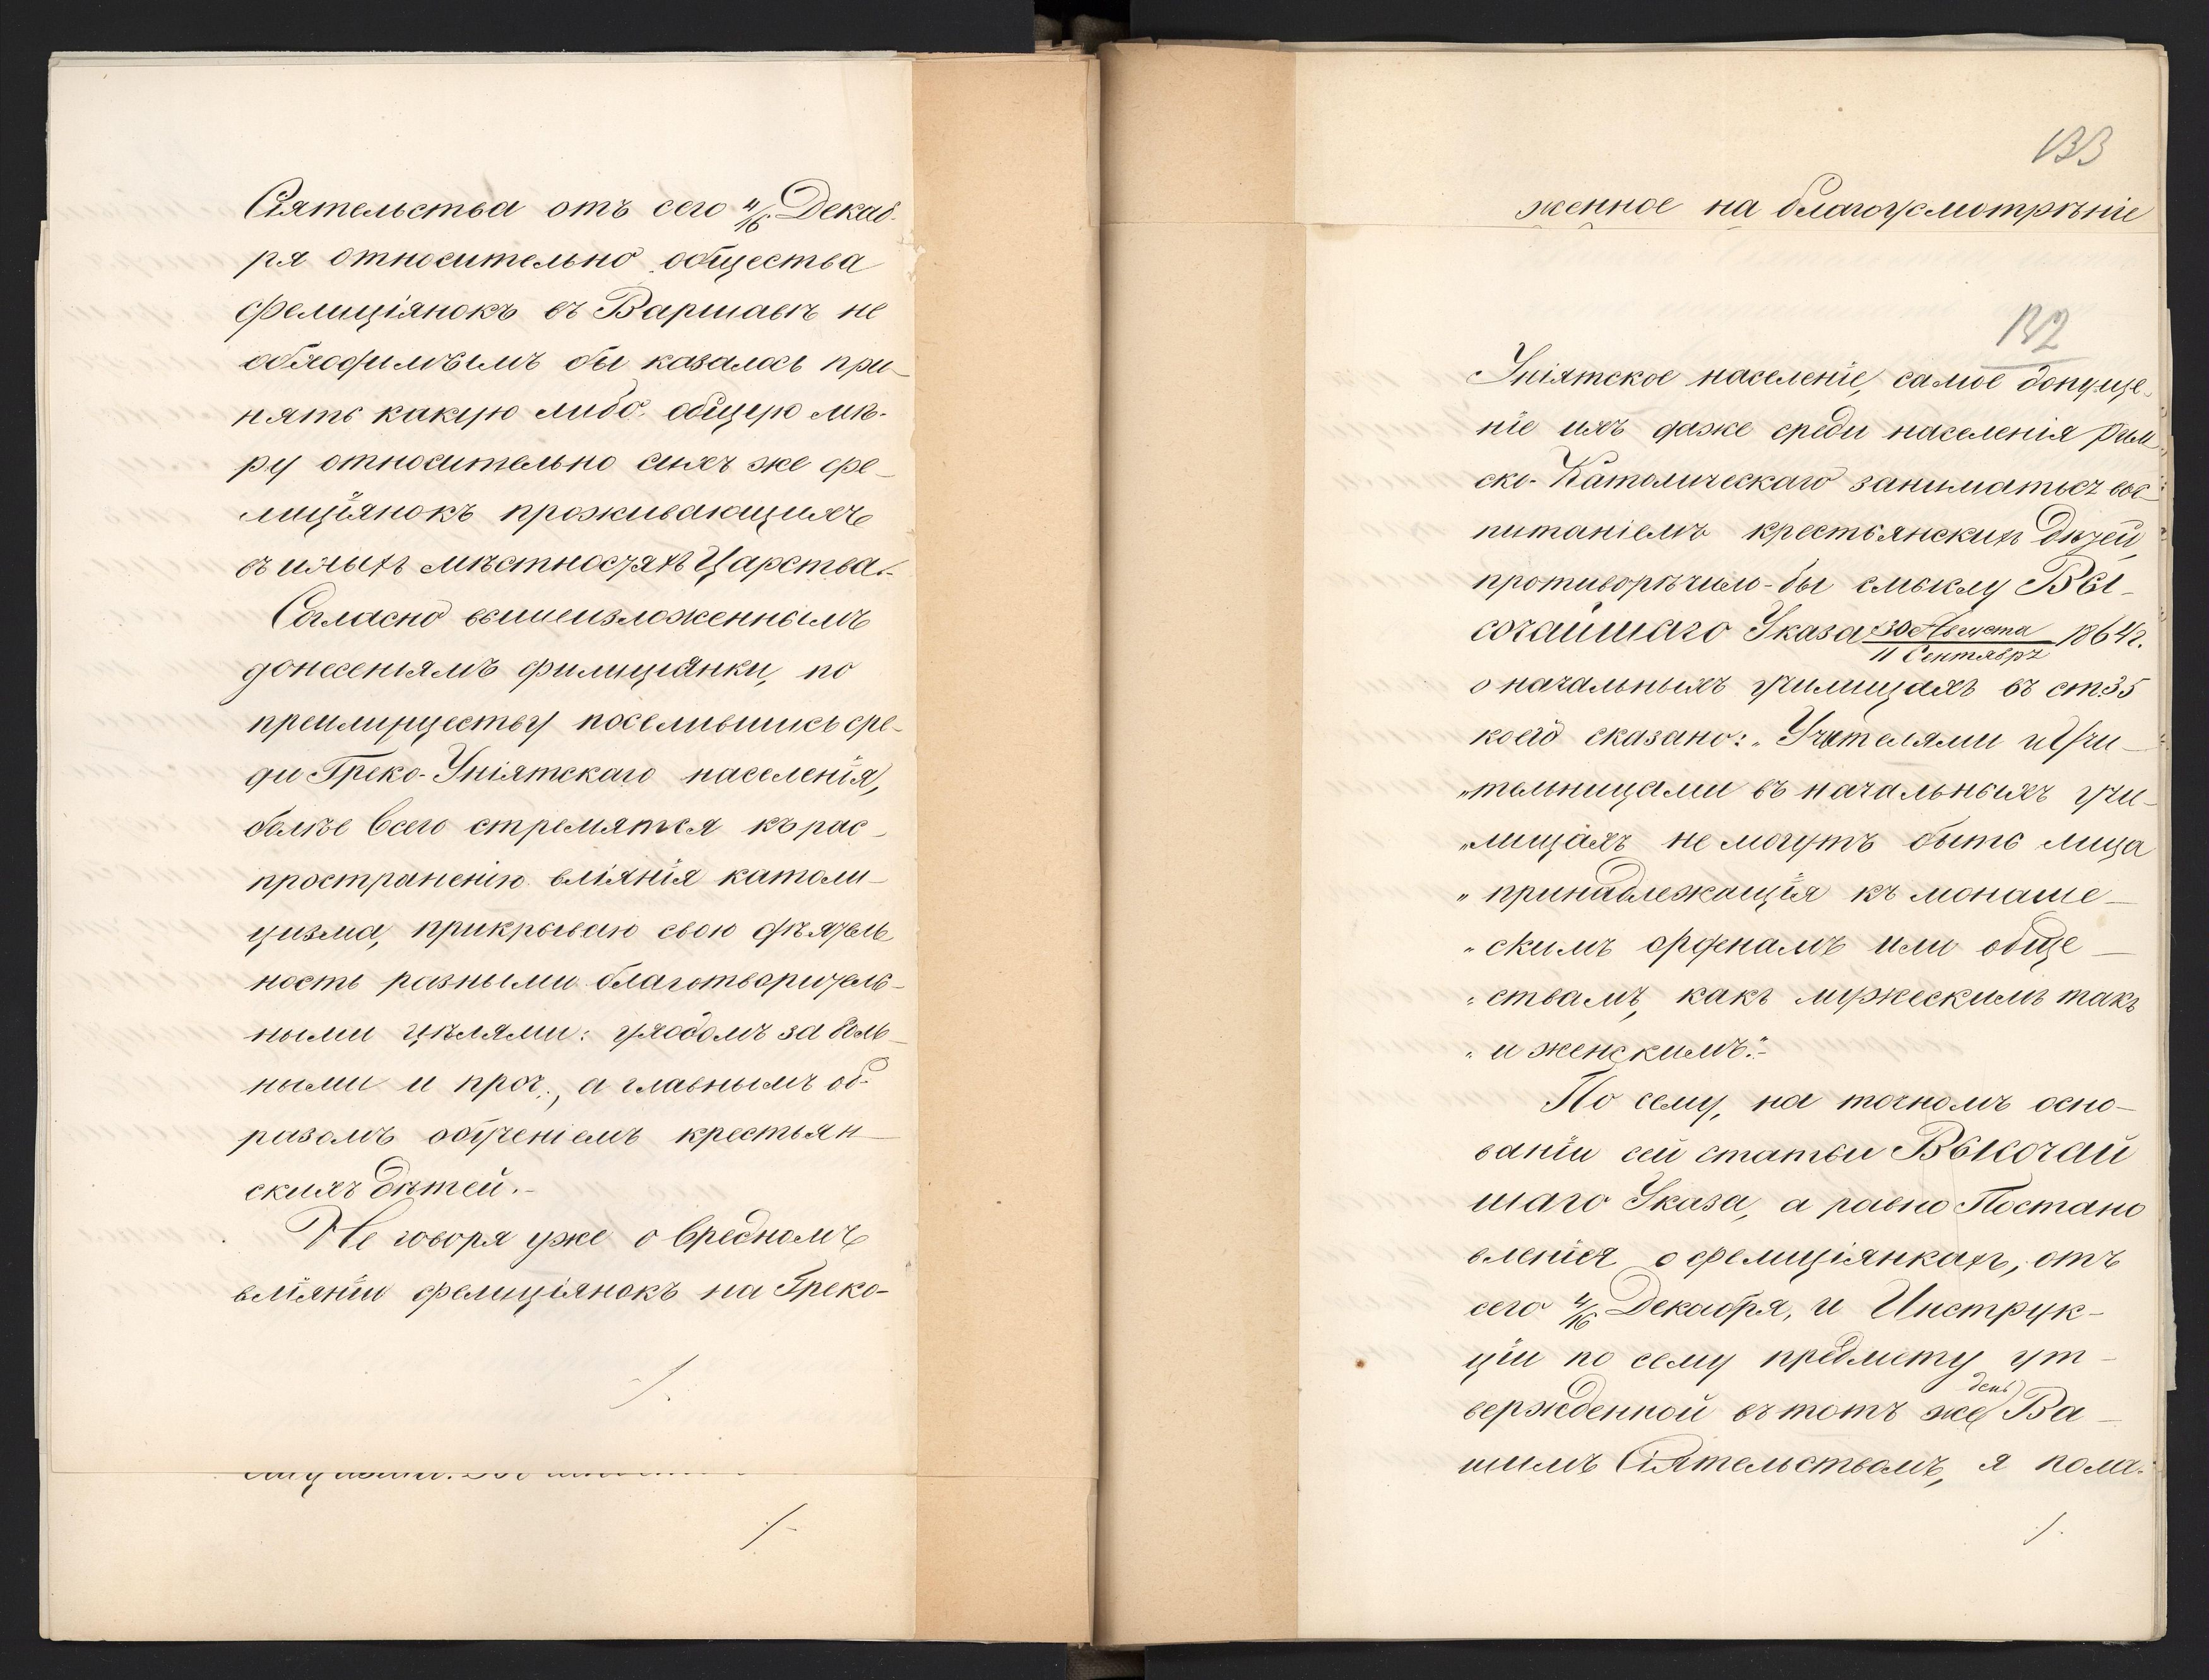 Сіятельства отъ сего 4/16 Декаб-
ря относительно общества
фелиціянокъ въ Варшавѣ не
обходимымъ бы казалось при-
нять какую либо общую мѣ-
ру относительно сихъ же фе-
лиціянокъ проживающихъ
въ иныхъ мѣстностяхъ Царства.-
Согласно вышеизложеннымъ
донесеніямъ филиціянки, по
преимуществу поселившись сре-
ди Греко-Уніятскаго населенія,
болѣе всего стремятся къ рас-
пространенію вліянія католи-
цизма, прикрываю свою дѣятель
ность разными благотворитель-
ными цѣлями: уходомъ за боль-
ными и проч:, а главнымъ об-
разомъ обученіемъ крестьян-
скихъ дѣтей.-
Не говоря уже о вредномъ
вліяніи фелиціянокъ на Греко-
133
женное на благоусмотрѣніе
132
Уніятское населеніе, самое допуще-
ніе ихъ даже среди населенія Рим
ско-Католическаго заниматься вос-
питаніемъ крестьянскихъ дѣтей,
противорѣчило-бы смыслу Вы-
сочайшаго Указа 30 Августа/11 Сентября 1864 г.
о начальныхъ училищахъ въ ст. 35
коего сказано: „Учителями и Учи-
„тельницами въ начальныхъ учи-
„лищахъ не могутъ быть лица
„принадлежащія къ монаше-
„скимъ орденамъ или обще-
„ствамъ, какъ мужескимъ такъ
„и женскимъ."-
По сему, на точномъ осно-
ваніи сей статьи Высочай
шаго Указа, а равно Постано
вленія о фелиціянкахъ, отъ
сего 4/16 Декабря, и Инструк-
ціи по сему предмету ут-
вержденной въ тотъ же день Ва-
шимъ Сіятельствомъ, я пола-